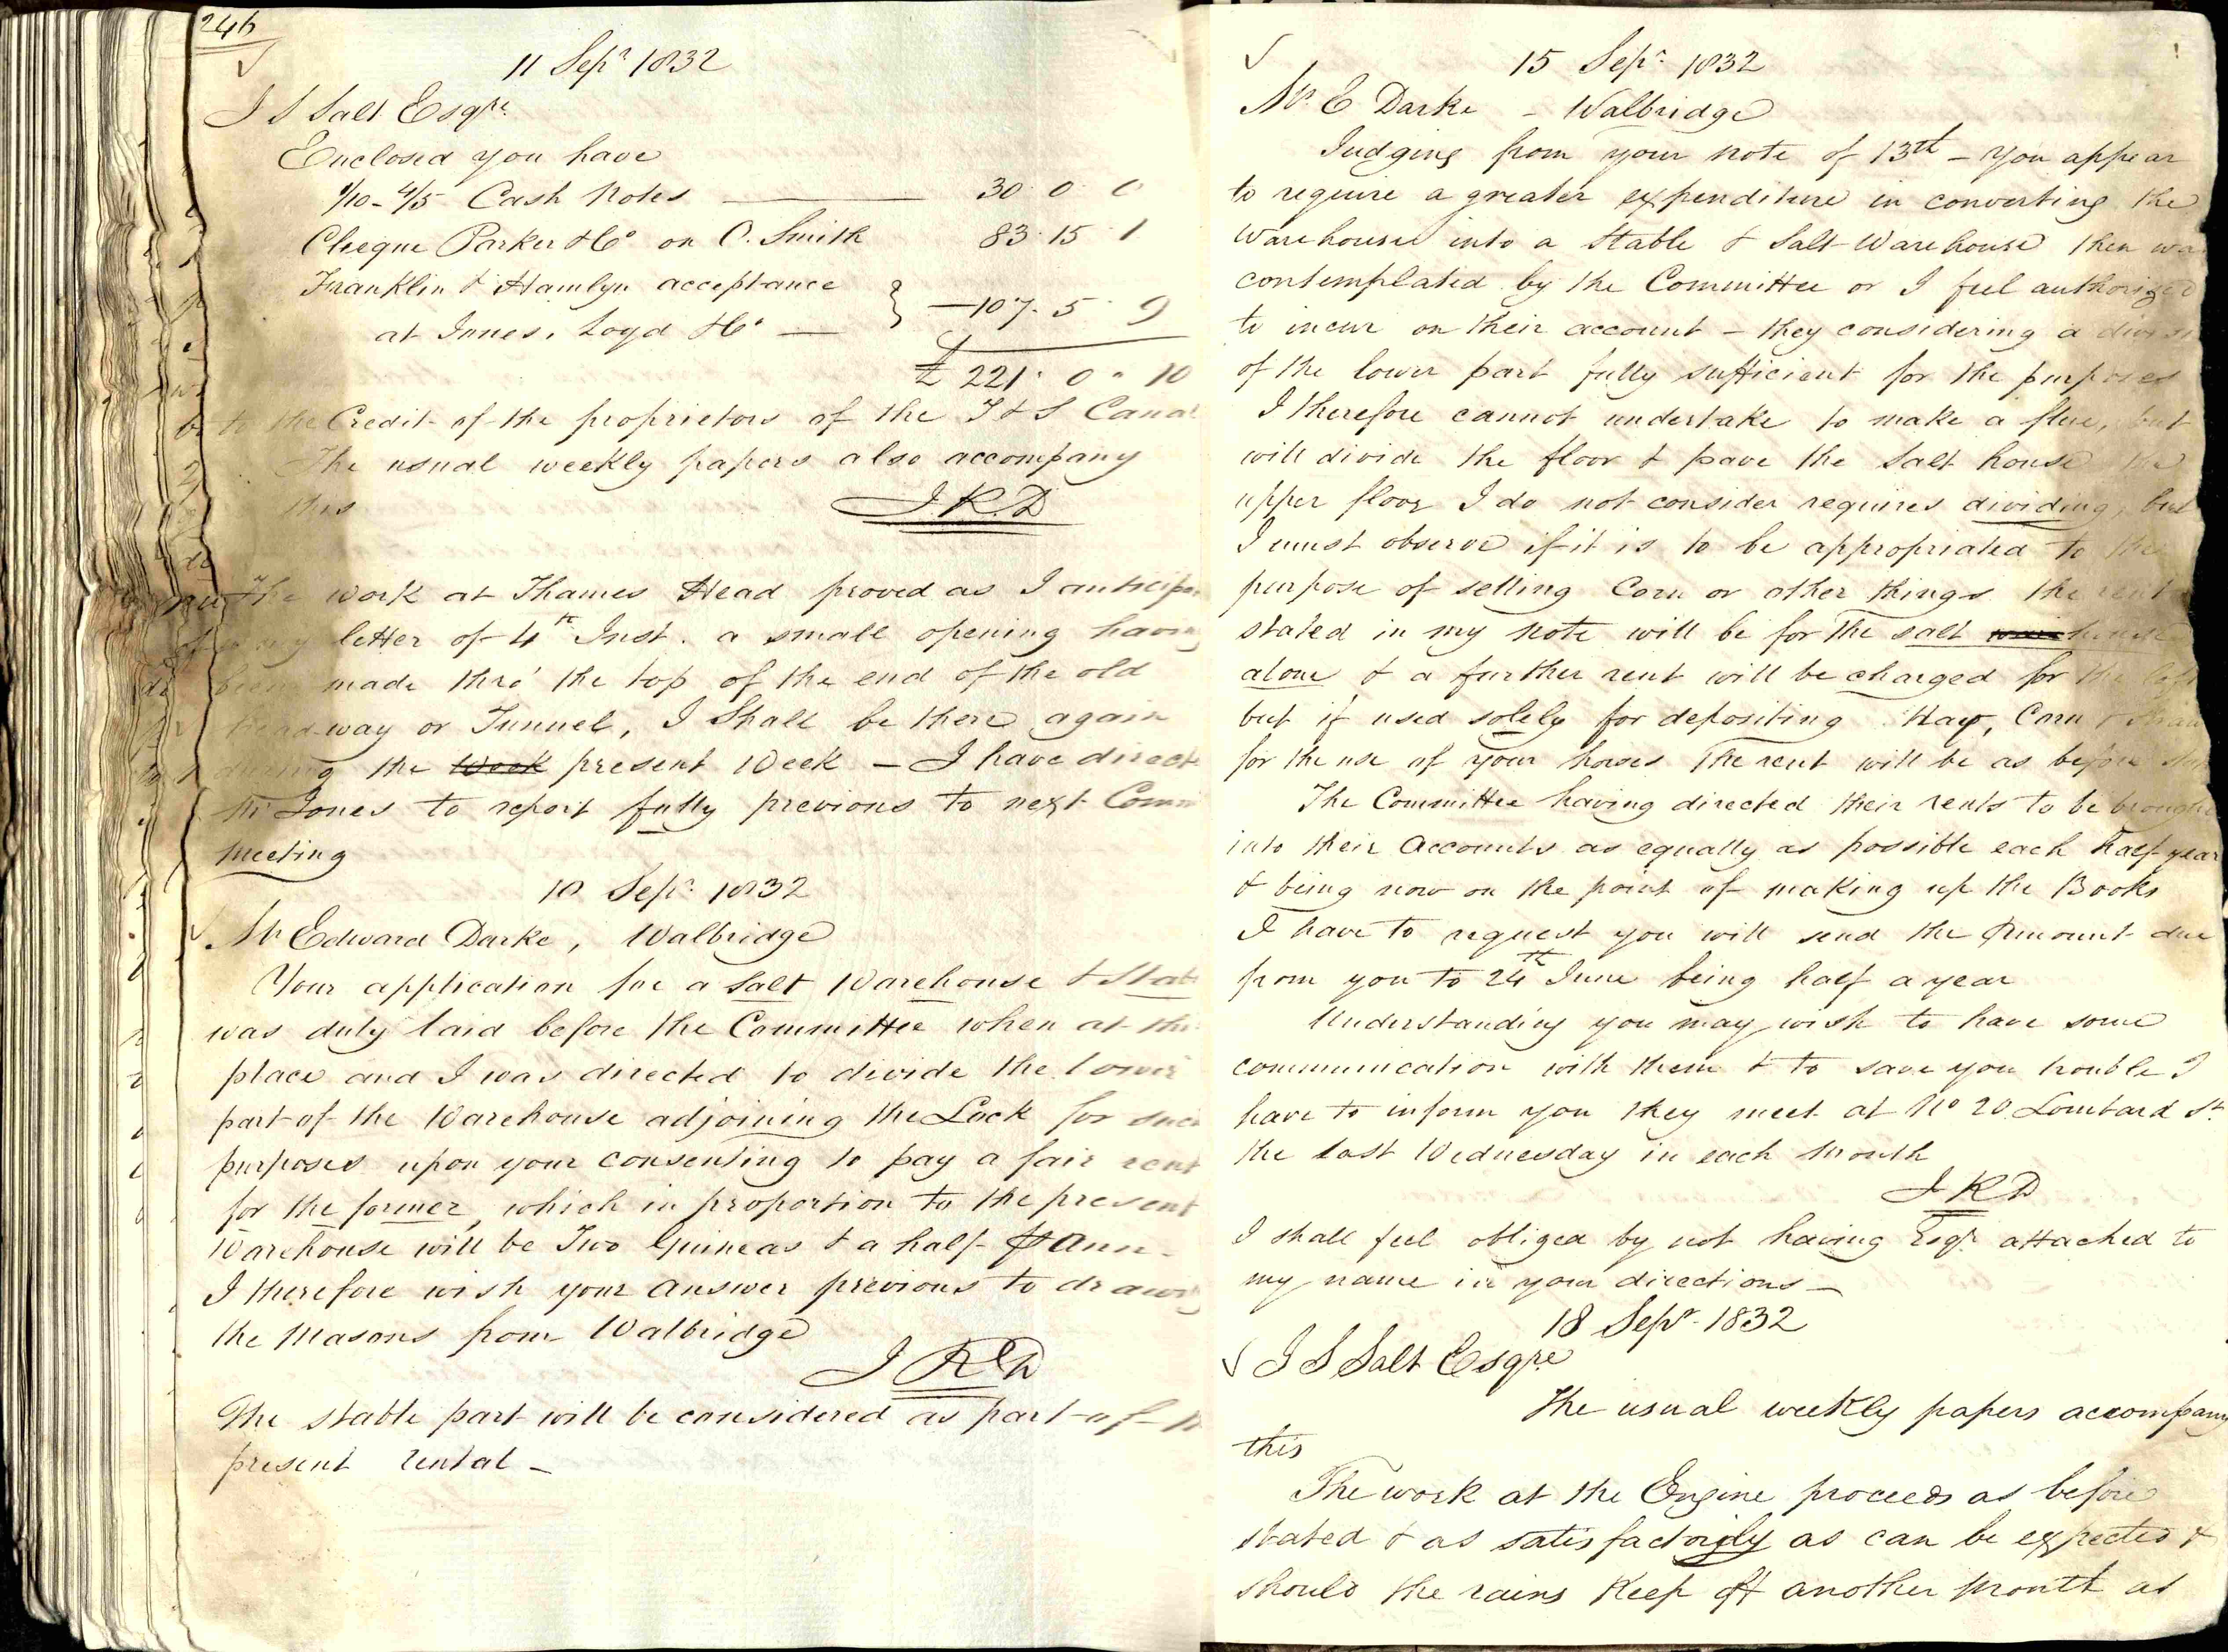 246
11 Sepr 1832
J S Salt Esqre
Enclosed you have
1/10 - 4/5 Cash Notes 30 . 0 . 0
Cheque Parker & Co on O. Smith 83 . 15 . 1
Franklin & Hamlyn acceptance
at Innes, Loyd & Co — } — 107 . 5 . 9
£ 221 . 0 . 10
to the Credit of the proprietors of the T & S Canal
The usual weekly papers also accompany
this
J R D
The work at Thames Head proved as I
my letter of 4th Inst. a small opening having
been made thro' the top of the end of the old
Headway or Tunnel, I Shall be there again
during the Week present Week — I have
Mr Jones to report fully previous to next
meeting
10 Sepr 1832
Mr Edward Darke, Walbridge
Your application for a Salt Warehouse &
was duly laid before the Committee when at this
place and I was directed to divide the lower
part of the Warehouse adjoining the Lock for such
purposes upon your consenting to pay a fair rent
for the former, which in proportion to the present
Warehouse will be Two Guineas & a half ⅌ Ann.
I therefore wish your answer previous to
the Masons from Walbridge
J R D
The stable part will be considered as part of
present rental —
15 Sepr 1832
Mr E Darke - Walbridge
Judging from your note of 13th — you appear
to require a greater expenditure in converting the
Warehouse into a Stable & Salt Warehouse then
contemplated by the Committee or I feel authorized
to incur on their account — they considering a
of the lower part fully sufficient for the purposes
I therefore cannot undertake to make a flue, but
will divide the floor & pave the Salt house the
upper floor I do not consider requires dividing, but
I must observe if it is to be appropriated to the
purpose of selling Corn or other things the rent
stated in my note will be for the salt house
alone & a further rent will be charged for the
but if used solely for depositing Hay, Corn &
for the use of your horses the rent will be as before
The Committee having directed their rents to be brought
into their Accounts as equally as possible each half year
& being now on the point of making up the Books
I have to request you will send the Amount due
from you to 24th June being half a year
Understanding you may wish to have some
communication with them & to save you trouble I
have to inform you they meet at No 20 Lombard St
the last Wednesday in each Month
J R D
I shall feel obliged by not having Esqr attached to
my name in your directions —
18 Sepr 1832
J S Salt Esqre
The usual weekly papers accompany
this
The work at the Engine proceeds as before
stated & as satisfactorily as can be expected &
should the rains Keep off another Month as